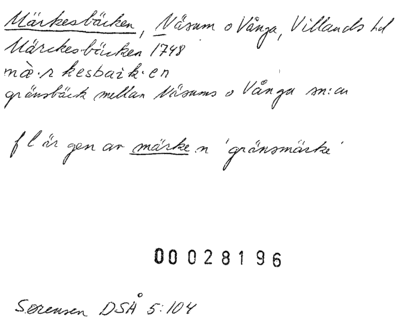 Märkesbäcken, Näsum o Vånga, Villands hd
Märckesbäcken 1748
mæ̀·rkesbaik·en
gränsbäck mellan Näsums o Vånga sn:ar
f l är gen av märke n 'gränsmärke'
00028196
Sørensen DSÅ 5:104